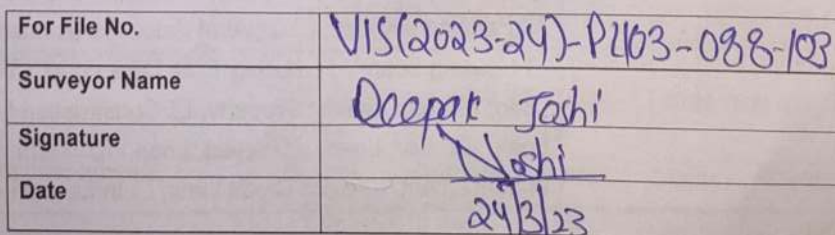 For File No. VIS(2023-24)-PL103-088-103
Surveyor Name Deepak Joshi
Signature Joshi
Date 24/3/23